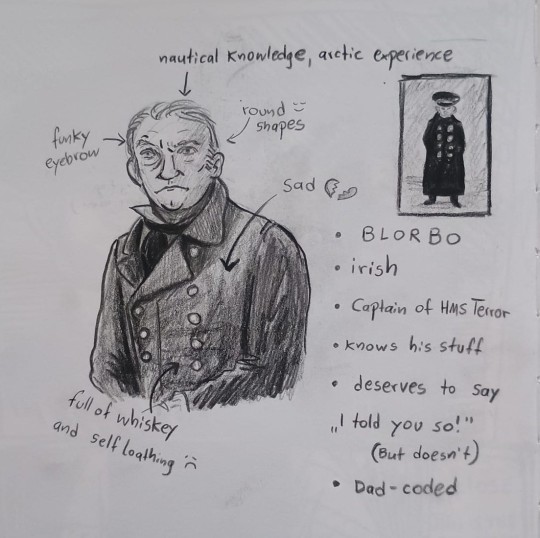 nautical knowledge, arctic experience
funky
eyebrow
round
shapes
sad
• BLORBO
• irish
• Captain of HMS Terror
• knows his stuff
• deserves to say
„I told you so!"
(But doesn't)
• Dad-coded
full of whiskey
and self loathing :(